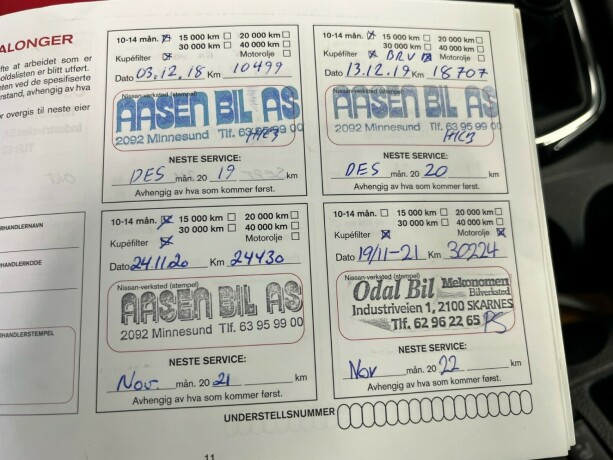 ALONGER
fte at arbeidet som er
oldslisten er blitt utført.
nten ved de spesifiserte
rstand, avhengig av hva
r overgis til neste eier
RHANDLERNAVN
RHANDLERKODE
RHANDLERSTEMPEL
10-14 mån. 15 000 km 20 000 km
30 000 km 40 000 km
Kupéfilter Motorolje
Dato 03.12.18 Km 10499
Nissan-verksted (stempel)
AASEN BIL AS
2092 Minnesund Tlf. 63 95 99 00
NESTE SERVICE:
DES mån. 20 19 km
Avhengig av hva som kommer først.
10-14 mån. 15 000 km 20 000 km
30 000 km 40 000 km
Kupéfilter BRV Motorolje
Dato 13.12.19 Km 18707
Nissan-verksted (stempel)
AASEN BIL AS
2092 Minnesund Tlf. 63 95 99 00
NESTE SERVICE:
DES mån. 20 20 km
Avhengig av hva som kommer først.
10-14 mån. 15 000 km 20 000 km
30 000 km 40 000 km
Kupéfilter Motorolje
Dato 24.11.20 Km 24430
Nissan-verksted (stempel)
AASEN BIL AS
2092 Minnesund Tlf. 63 95 99 00
NESTE SERVICE:
Nov. mån. 20 21 km
Avhengig av hva som kommer først.
10-14 mån. 15 000 km 20 000 km
30 000 km 40 000 km
Kupéfilter Motorolje
Dato 19/11-21 Km 30224
Nissan-verksted (stempel)
Odal Bil Mekonomen
Bilverksted
Industriveien 1, 2100 SKARNES
Tlf. 62 96 22 65 PS
NESTE SERVICE:
Nov mån. 20 22 km
Avhengig av hva som kommer først.
UNDERSTELLSNUMMER
11